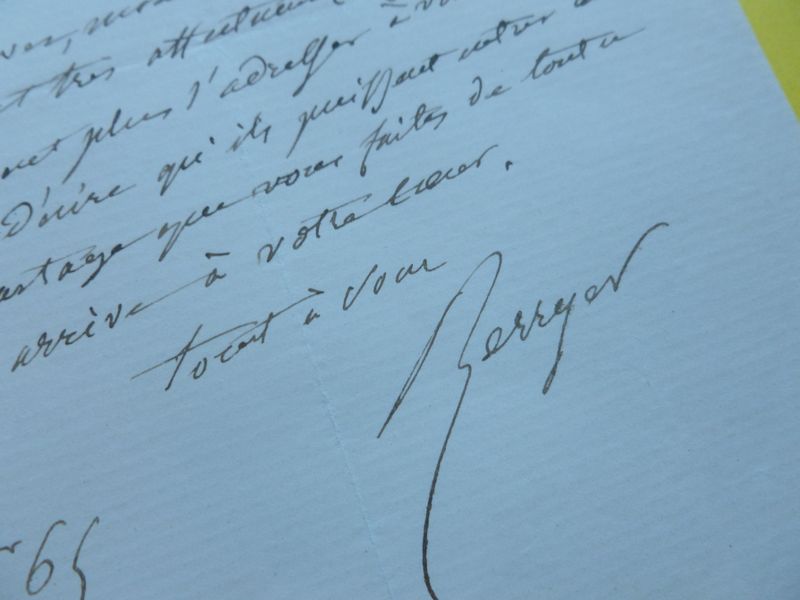 très attentive
plus s'adresser à vo
Désire qu'ils puissent entrer
partage que vous faites de tout a
arrive à votre cœur.
tout à vous
Berryer
65